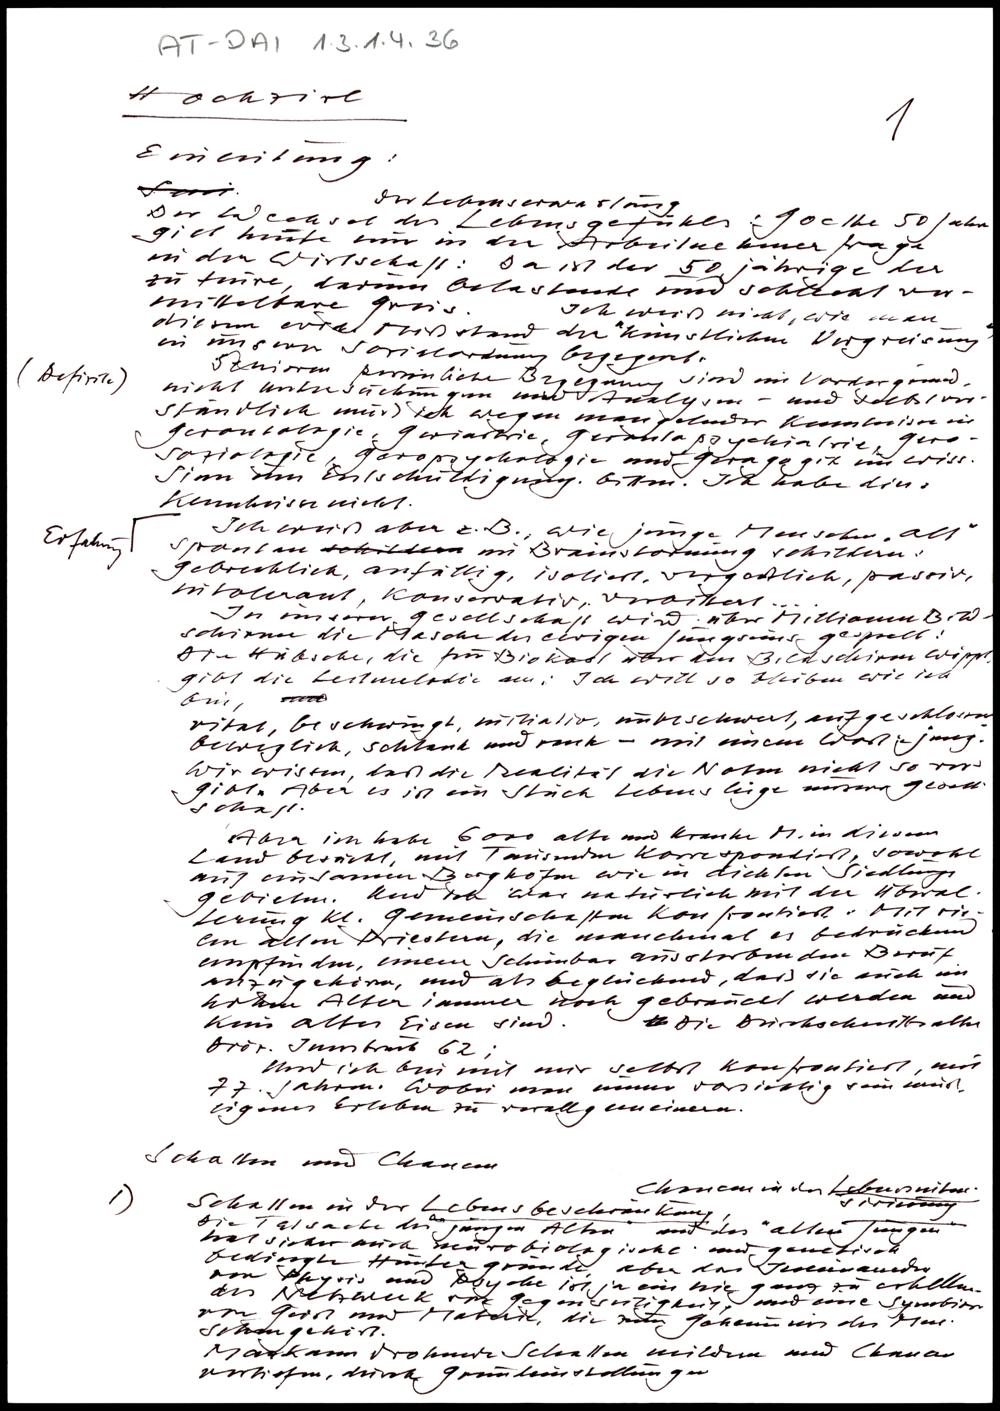 AT-DAI 1.3.1.4.36
Hochzirl
1
Einleitung:
der Lebenserwartung
Der Wechsel des Lebensgefühles: Goethe 50 Jahre
gibt heute nur in der Arbeitnehmerfrage
in der Wirtschaft: Da ist der 50 jährige der
zu teure, darum belastende und schlecht ver-
mittelbare Greis. Ich weiß nicht, wie man
diesem Mißstand der "künstlichen Vergreisung"
in unserer Sozialordnung begegnet.
(Defizite)
persönliche Begegnung sind im Vordergrund,
nicht Untersuchungen und Analysen - und selbstver-
ständlich muß ich wegen mangelnder Kenntnisse in
Gerontologie, Geriatrie, Gerontopsychiatrie, Gero-
soziologie, Geropsychologie und Geragogik im wiss.
Sinn um Entschuldigung bitten. Ich habe diese
Kenntnisse nicht.
Erfahrung
Ich weiß aber z.B., wie junge Menschen "alt"
spontan schildern im Brainstorming schildern:
gebrechlich, anfällig, isoliert, vergeßlich, passiv,
intolerant, konservativ, verbittert...
In unserer Gesellschaft wird über Millionen Bild-
schirme die Masche des ewigen Jungseins gespielt:
Die Hübsche, die für Biokost über den Bildschirm wippt,
gibt die Leitmelodie an: Ich will so bleiben wie ich
bin,
vital, beschwingt, initiativ, unbeschwert, aufgeschlossen
beweglich, schlank und rank - mit einem Wort: jung.
Wir wissen, daß die Realität die Noten nicht so vor-
gibt. Aber es ist ein Stück Lebenslüge unserer Gesell-
schaft.
Aber ich habe 6000 alte und kranke M. in diesem
Land besucht, mit Tausenden korrespondiert, sowohl
auf einsamen Berghöfen wie in dichten Siedlungs
gebieten. Und ich war natürlich mit der Überal-
terung kl. Gemeinschaften konfrontiert. Mit vie-
len alten Priestern, die manchmal es bedrückend
empfinden, einem scheinbar aussterbenden Beruf
anzugehören, und als beglückend, daß sie auch im
hohen Alter immer noch gebraucht werden und
kein altes Eisen sind. Die Durchschnittsalter
Diöz. Innsbruck 62;
Und ich bin mit mir selbst konfrontiert, mit
77 Jahren. Wobei man immer vorsichtig sein muß,
eigenes Erleben zu verallgemeinern.
Schatten und Chancen
Chancen in der Lebensinten-
sivierung
1) Schatten in der Lebensbeschränkung,
Die Tatsache der "jungen Alten" und der "alten Jungen"
hat sicher auch neurobiologische und genetisch
bedingte Hintergründe aber das Ineinander
von Physis und Psyche ist ja nie ganz zu erhellen
das Netzwerk von Gegenseitigkeit, und eine Symbiose
von Geist und Materie, die zum Geheimnis des Men-
schen gehört.
Man kann drohende Schatten mildern und Chancen
vertiefen, durch Grundeinstellungen